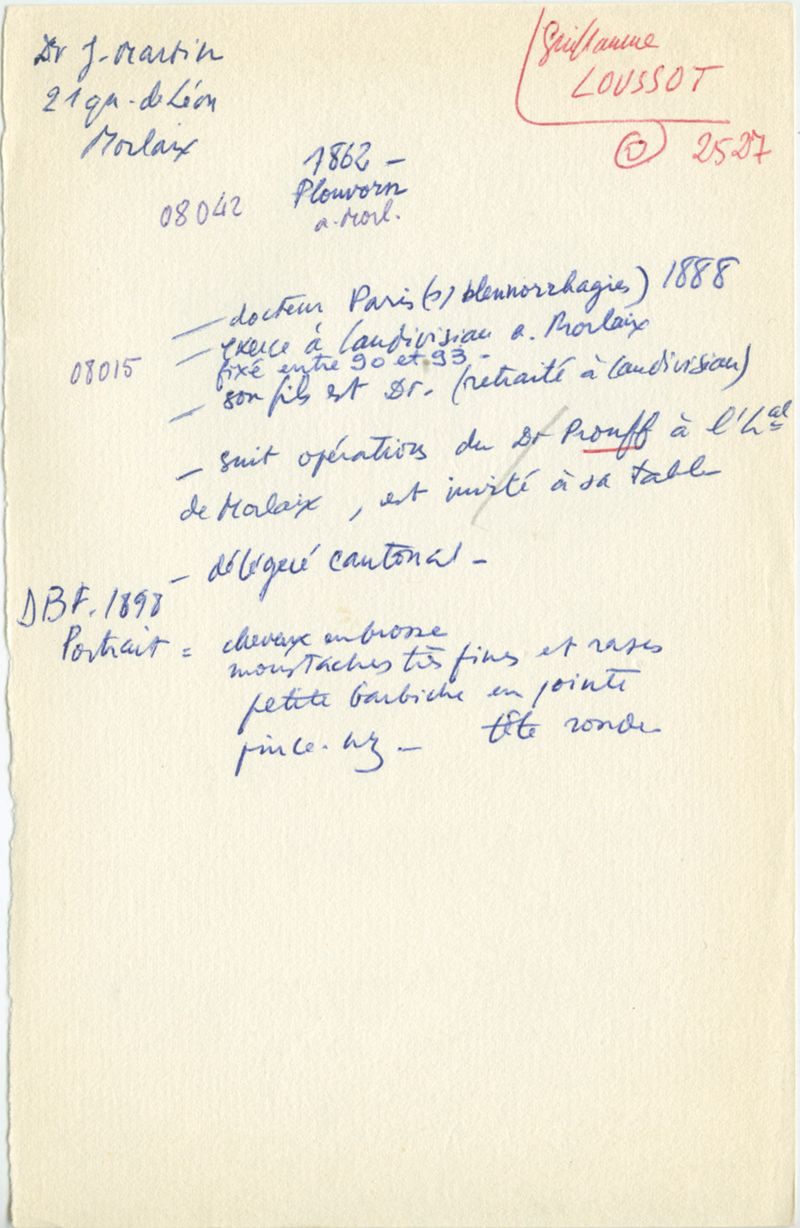 Dr J. Martin
21 qu. de Léon
Morlaix
Guillaume
LOUSSOT
2527
1862 –
Plouvorn
a. Morl.
08042
– docteur Paris (s/ blennorrhagies) 1888
– exerce à Landivisiau a. Morlaix
08015
fixé entre 90 et 93 –
– son fils est Dr. (retraité à Landivisiau)
– suit opérations du Dr Prouff à l'hal
de Morlaix, est invité à sa table
– délégué cantonal –
DBF. 1898
Portrait = cheveux en brosse
moustaches très fines et rases
petite barbiche en pointe
pince-nez – tête ronde